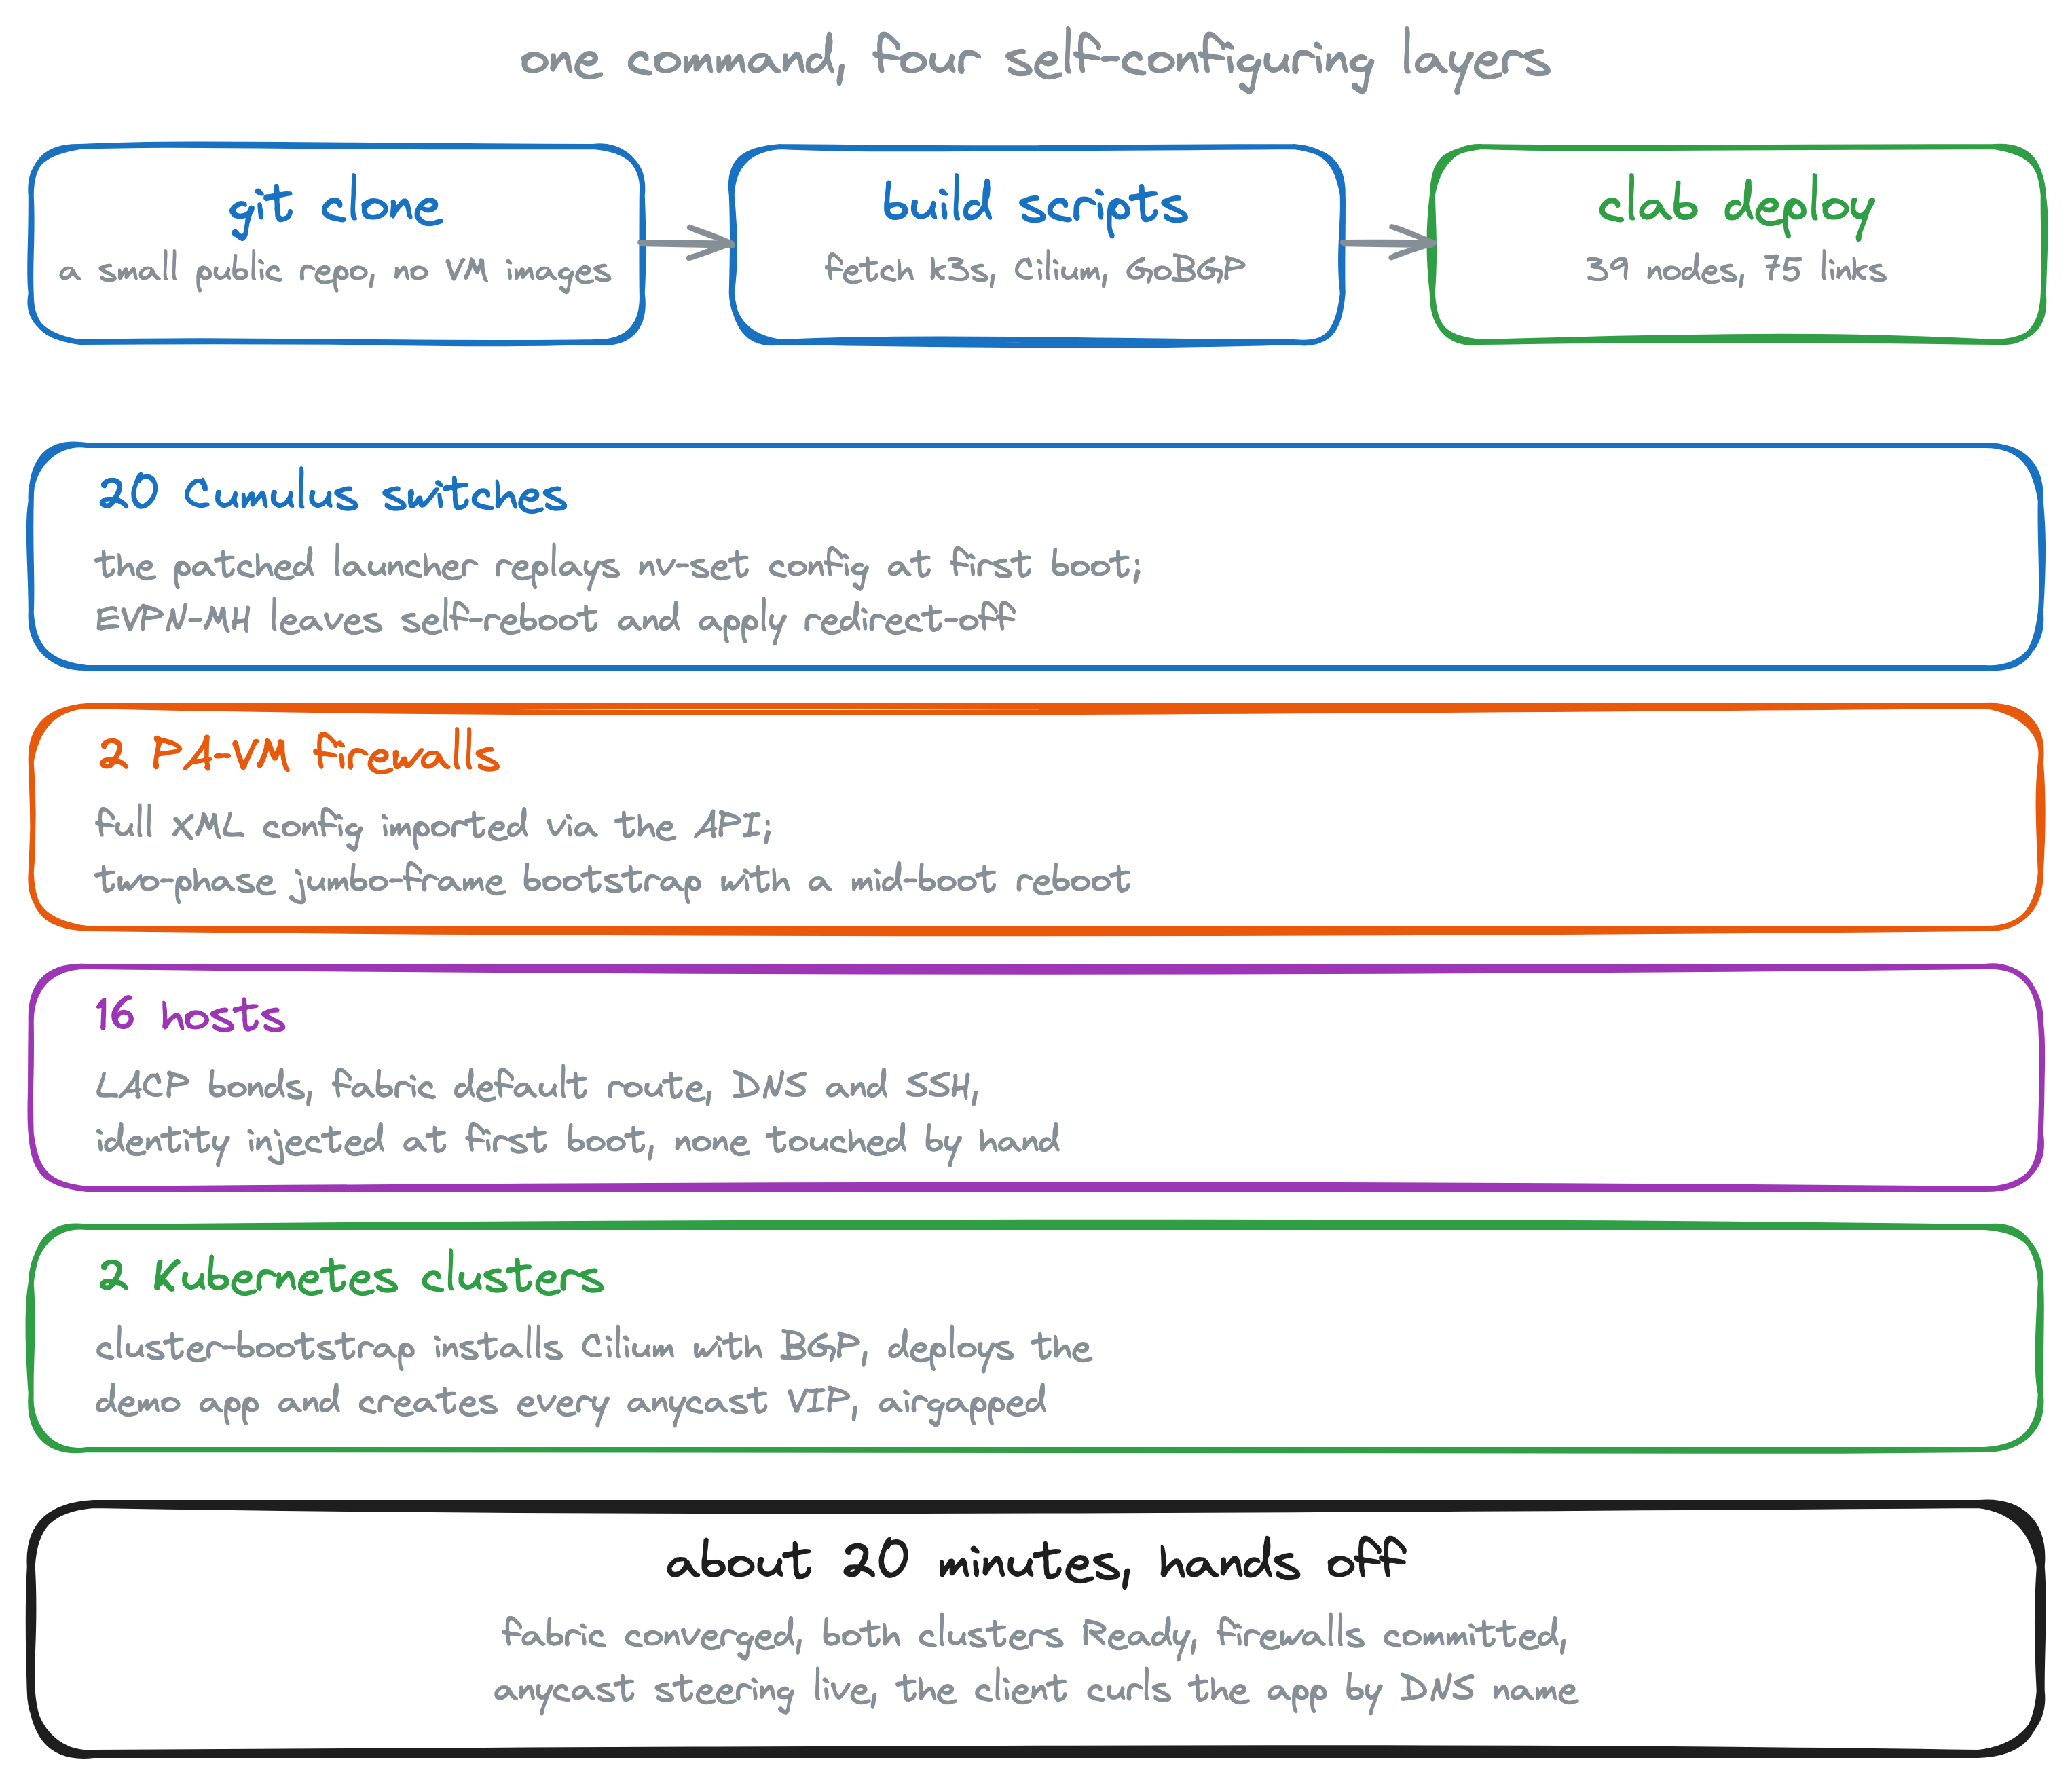 one command, four self-configuring layers
git clone
a small public repo, no VM images
build scripts
fetch k3s, Cilium, GoBGP
clab deploy
39 nodes, 75 links
20 Cumulus switches
the patched launcher replays nv-set config at first boot;
EVPN-MH leaves self-reboot and apply redirect-off
2 PA-VM firewalls
full XML config imported via the API;
two-phase jumbo-frame bootstrap with a mid-boot reboot
16 hosts
LACP bonds, fabric default route, DNS and SSH,
identity injected at first boot, none touched by hand
2 Kubernetes clusters
cluster-bootstrap installs Cilium with BGP, deploys the
demo app and creates every anycast VIP, airgapped
about 20 minutes, hands off
fabric converged, both clusters Ready, firewalls committed,
anycast steering live, the client curls the app by DNS name